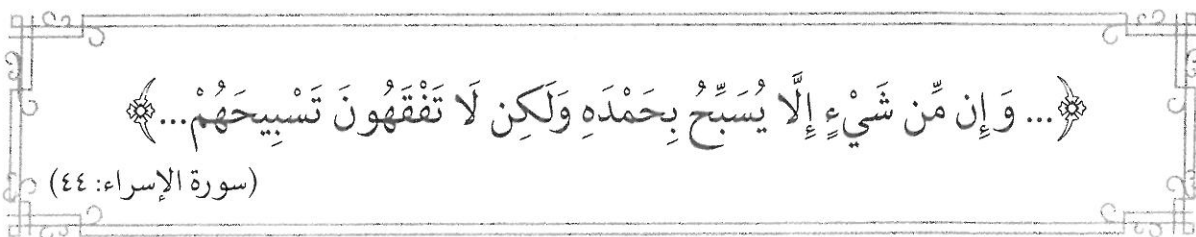 ﴿... وَإِن مِّن شَيْءٍ إِلَّا يُسَبِّحُ بِحَمْدَهِ وَلَكِن لَا تَفْقَهُونَ تَسْبِيحَهُمْ...﴾
(سورة الإسراء: ٤٤)